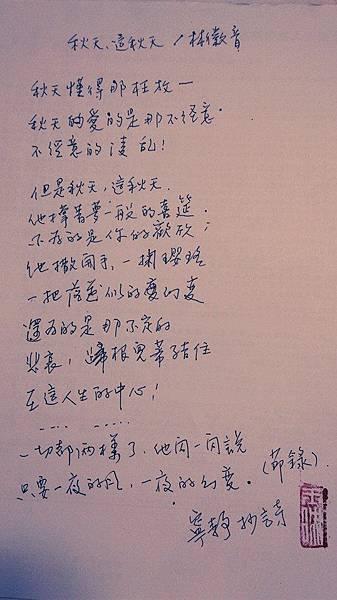 秋天,這秋天 / 林徽音
秋天懂得那狂放—
秋天的愛的是那不經意.
不經意的凌乱!
但是秋天,這秋天.
他撑着夢一般的喜筵.
不為的是你的歡欣;
他撒開手,一掬瓔珞
一把落花似的幻变
還为的是那不定的
悲哀,歸根兒蒂结住
在這人生的中心!
.... ....
一切都兩樣了,他閃一閃說
只要一夜的风,一夜的幻變.
(节錄).
寧靜 抄詩